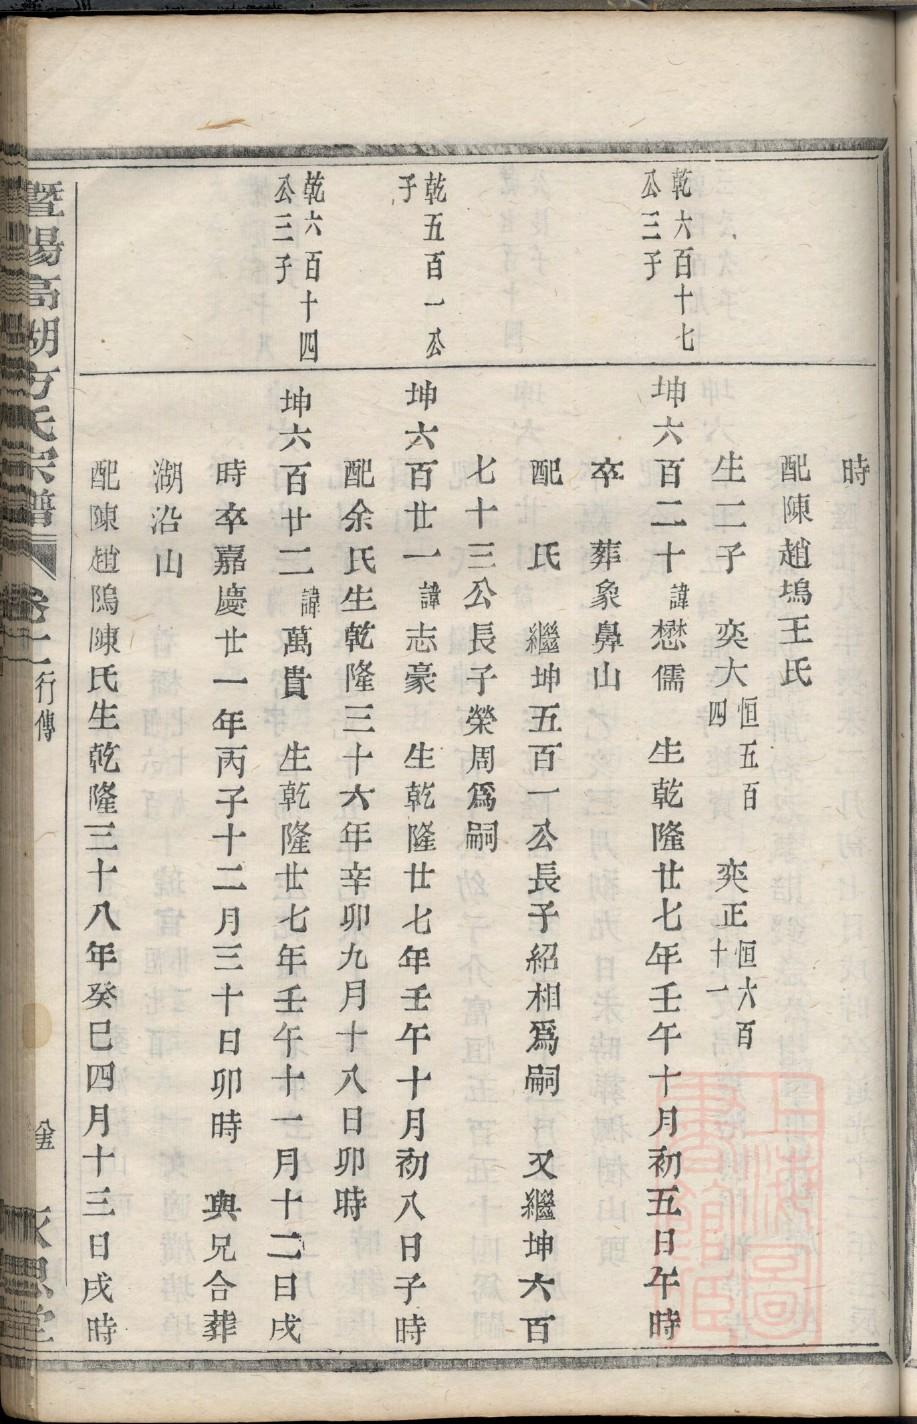 時
配陳趙塢王氏
生二子 奕大恒五百四 奕正恒六百十一
乾六百十七
公三子
坤六百二十諱懋儒 生乾隆廿七年壬午十月初五日午時
卒 葬象鼻山
配 氏 繼坤五百一公長子紹相爲嗣 又繼坤六百
七十三公長子榮周爲嗣
乾五百一公
子
坤六百廿一諱志豪 生乾隆廿七年壬午十月初八日子時
配余氏生乾隆三十六年辛卯九月十八日卯時
乾六百十四
公三子
坤六百廿二諱萬貴 生乾隆廿七年壬午十一月十二日戌
時卒嘉慶廿一年丙子十二月三十日卯時 與兄合葬
湖沿山
配陳趙隖陳氏生乾隆三十八年癸巳四月十三日戌時
暨陽高湖方氏宗譜 行傳